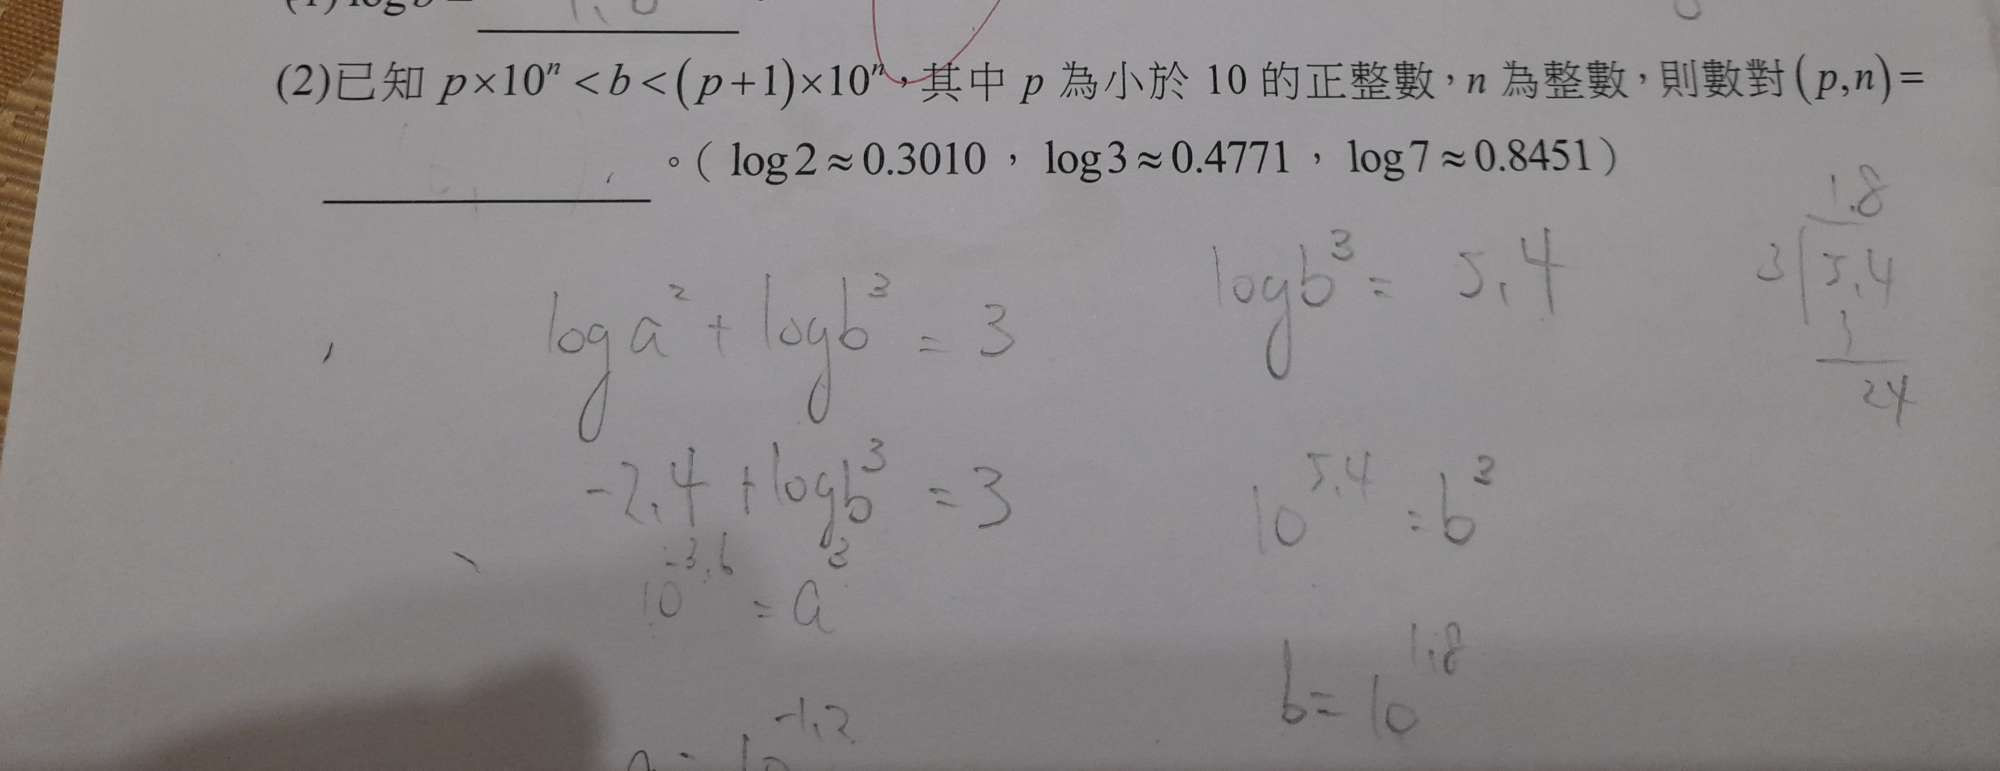 (1) log b = 1.8
(2)已知 p×10ⁿ < b < (p+1)×10ⁿ，其中 p 為小於 10 的正整數，n 為整數，則數對(p,n)=
。( log2≈0.3010 ， log3≈0.4771 ， log7≈0.8451 )
log a² + log b³ = 3
-2.4 + log b³ = 3
10^-3.6 = a³
a = 10^-1.2
log b³ = 5.4
10^5.4 = b³
b = 10^1.8
1.8
3 5.4
3
24